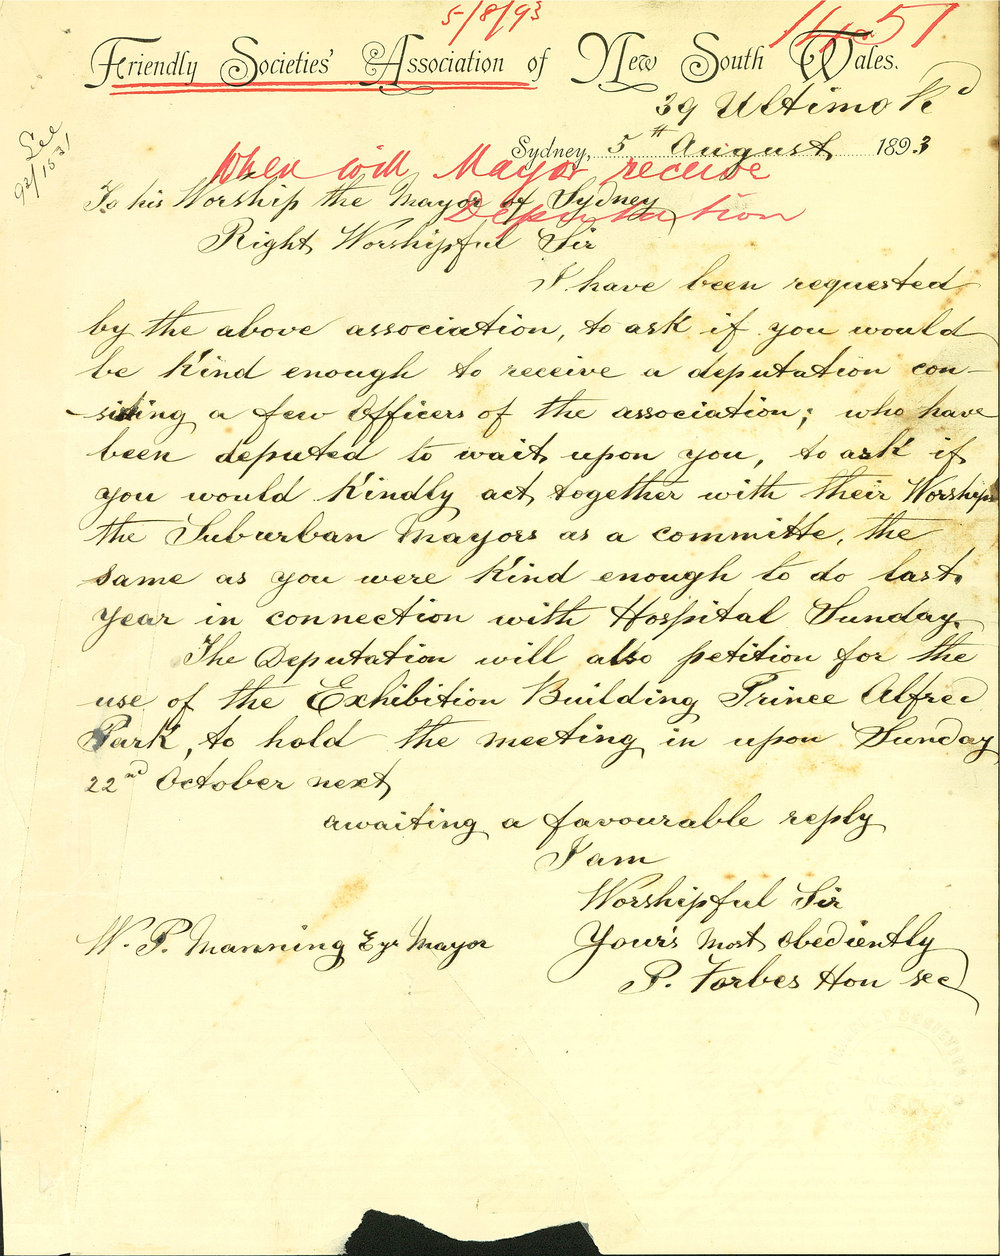 5/8/93
Friendly Societies' Association of New South Wales.
39 Ultimo Rd
See
92/1531
Sydney, 5th August 1893
When will Mayor receive
Deputation
To his Worship the Mayor of Sydney
Right Worshipful Sir
I have been requested
by the above association, to ask if you would
be kind enough to receive a deputation con-
-sisting a few Officers of the association; who have
been deputed to wait upon you, to ask if
you would kindly act together with their Worships
the Suburban Mayors as a committe, the
same as you were kind enough to do last
year in connection with Hospital Sunday.
The Deputation will also petition for the
use of the Exhibition Building Prince Alfred
Park, to hold the meeting in upon Sunday
22nd October next
awaiting a favourable reply
I am
Worshipful Sir
Your's most obediently
P. Forbes Hon sec
W. P. Manning Eqr Mayor